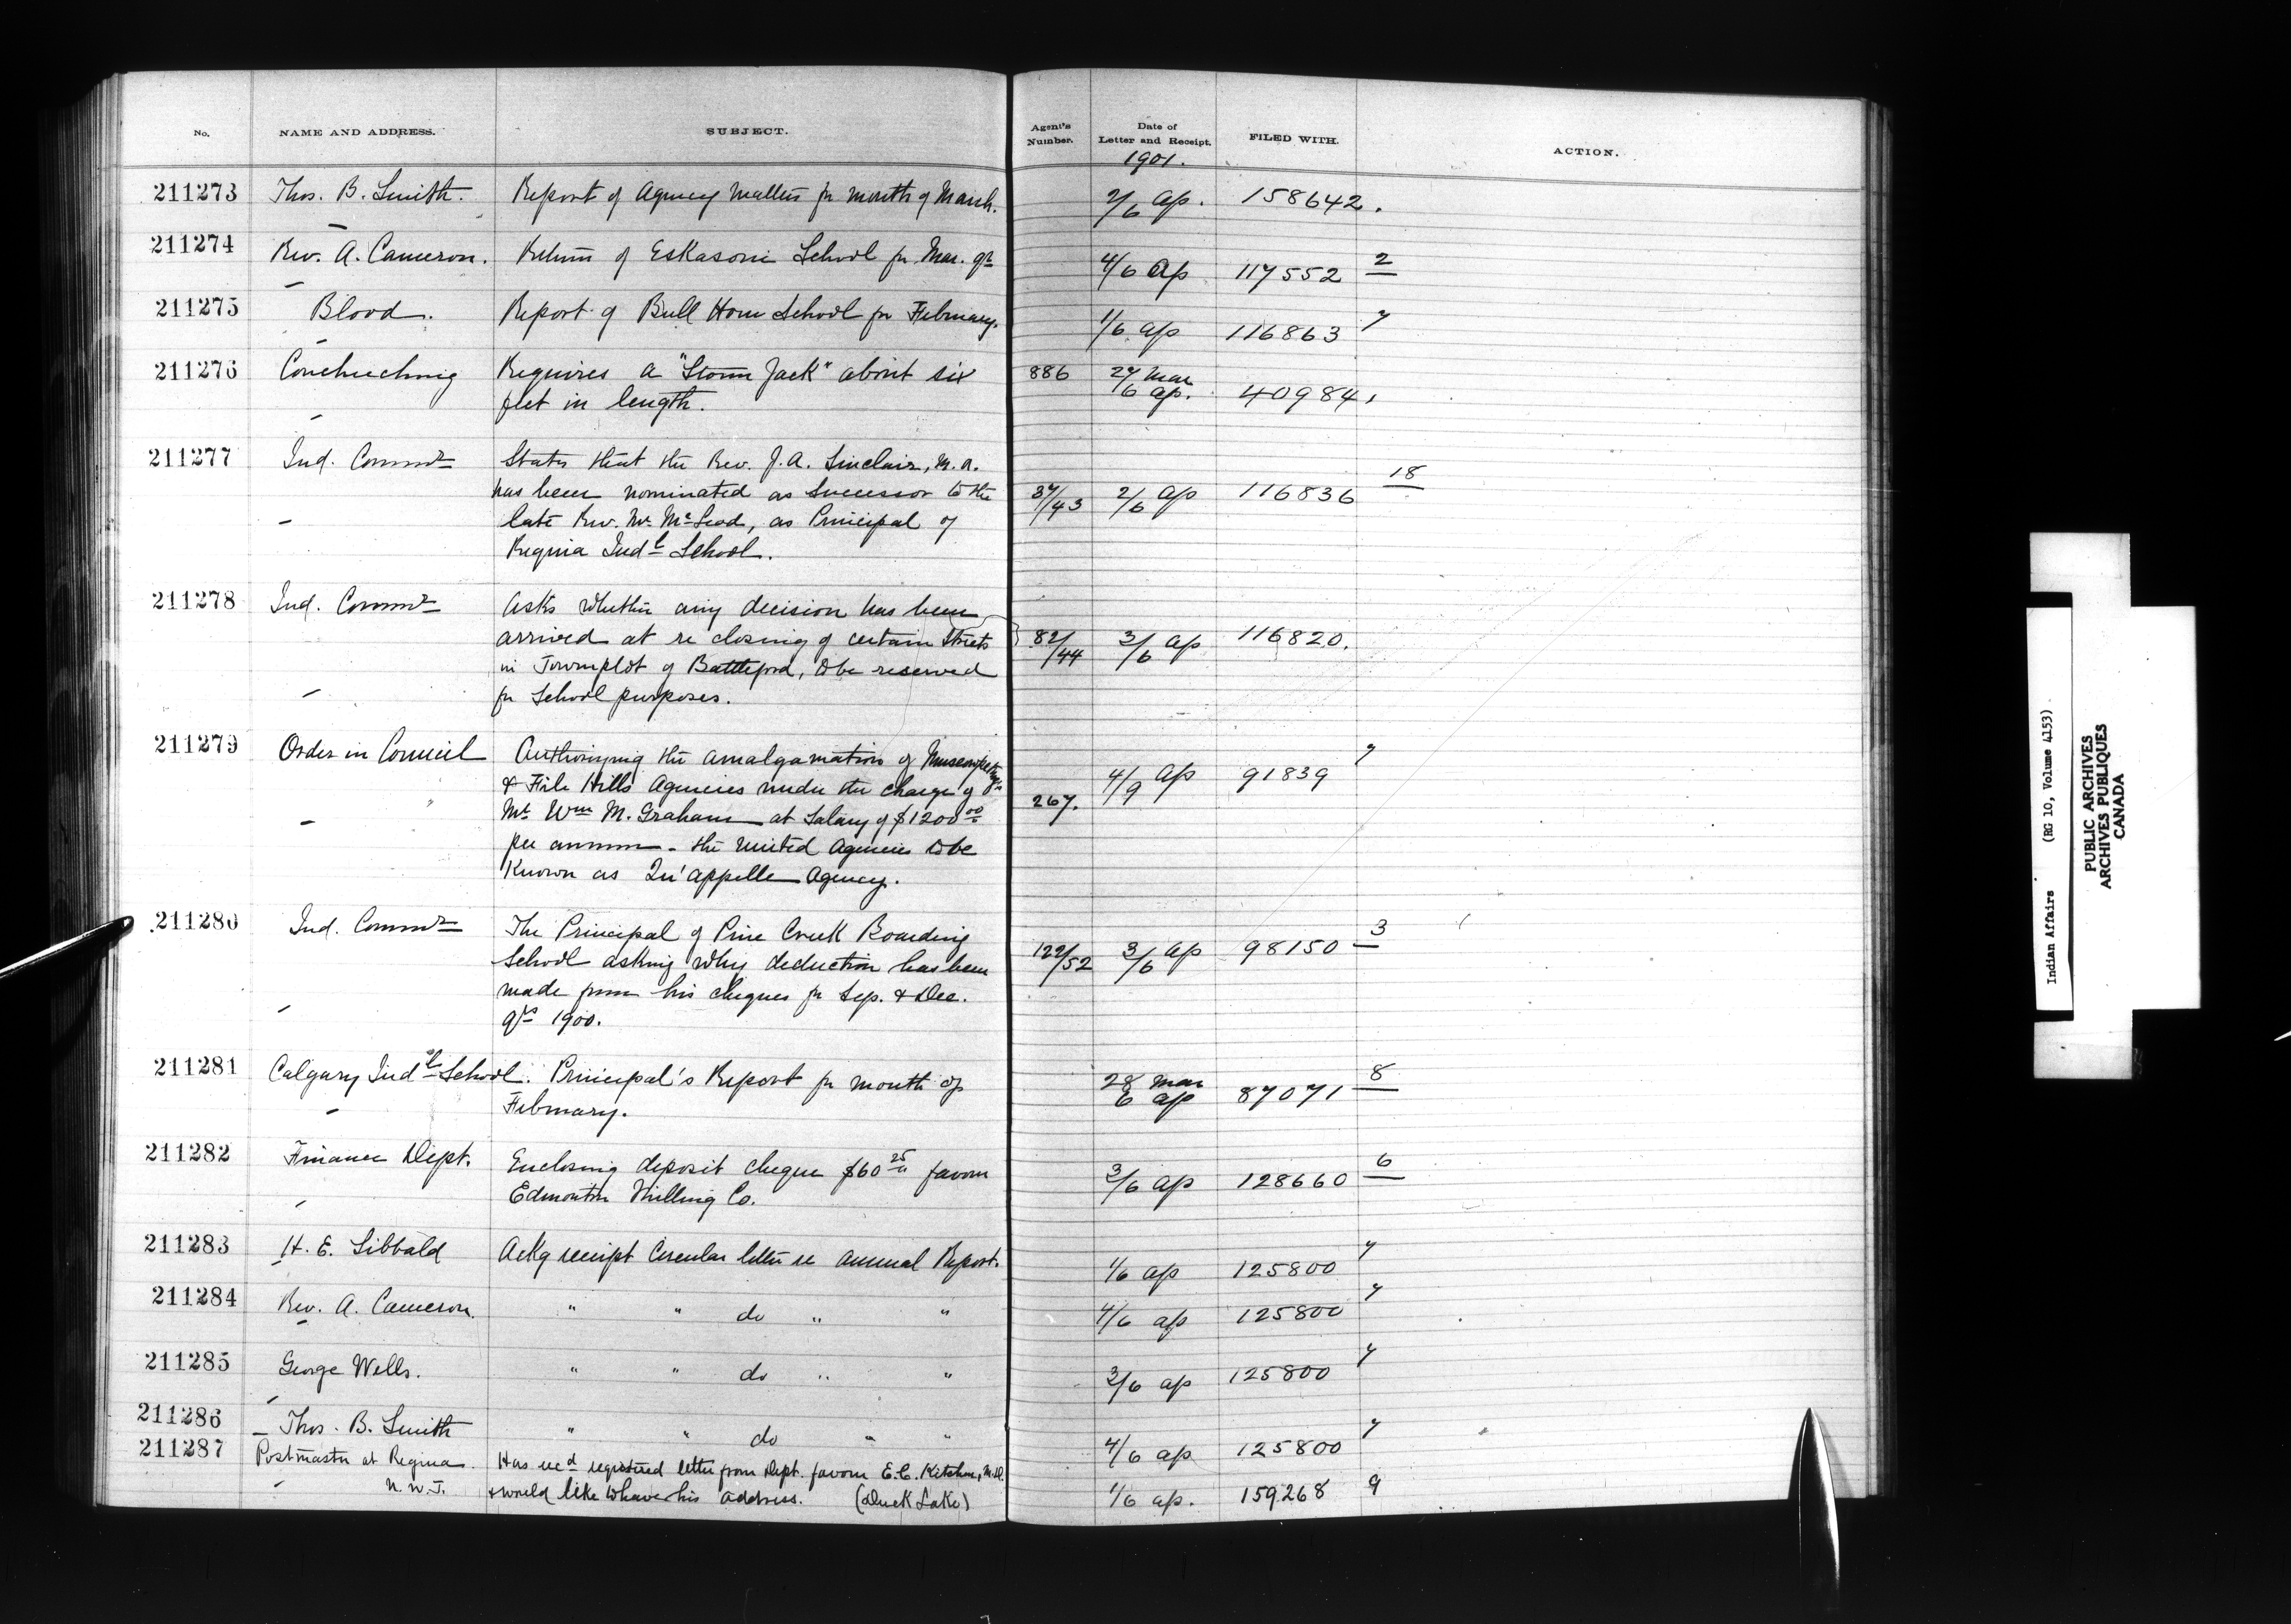 No. NAME AND ADDRESS. SUBJECT. Agent's Number. Date of Letter and Receipt. FILED WITH. ACTION.
1901.
211273 Thos. B. Smith. Report of Agency Matters for month of March. 2/6 ap. 158642.
211274 Rev. A. Cameron. Return of Eskasoni School for Mar. qr 4/6 ap 117552 2
211275 Blood. Report of Bull Horn School for February. 1/6 ap 116863 7
211276 Couchuching Requires a "Storm Jack" about six 886 27 Mar
feet in length. 6 ap. 40984,
211277 Ind. Commr States that the Rev. J. A. Sinclair, M.A. 18
has been nominated as Successor to the 37/43 2/6 ap 116836
late Rev. Mr. McLeod, as Principal of
Regina Indl School.
211278 Ind. Commr Asks whether any decision has been
arrived at re closing of certain Streets 82/44 3/6 ap 116820.
in Townplot of Battleford, to be reserved
for School purposes.
211279 Order in Council Authorizing the amalgamation of Muscowpetung's 7
& File Hills Agencies under the charge of 267. 4/9 ap 91839
Mr. Wm M. Graham at Salary of $1200 00
per annum - the united Agencies to be
Known as Qu'appelle Agency.
211280 Ind. Commr The Principal of Pine Creek Boarding 3
School asking why deduction has been 122/52 3/6 ap 98150
made from his cheques for Sep. & Dec.
qrs 1900.
211281 Calgary Indl School. Principal's Report for month of 28 Mar 8
February. 6 ap 87071
211282 Finance Dept. Enclosing deposit cheque $60 25 favour 6
Edmonton Milling Co. 3/6 ap 128660
211283 H. E. Sibbald Ackg receipt Circular letter re annual Report. 1/6 ap 125800 7
211284 Rev. A. Cameron. " " do " " 4/6 ap 125800 7
211285 George Wells. " " do " " 3/6 ap 125800 7
211286 Thos. B. Smith " " do " " 4/6 ap 125800 7
211287 Postmaster at Regina Has recd registered letter from Dept. favour E. C. Kitchen, M.D.
N.W.T. & would like to have his address. (Duck Lake) 1/6 ap. 159268 9
Indian Affairs (RG 10, Volume 4153)
PUBLIC ARCHIVES
ARCHIVES PUBLIQUES
CANADA